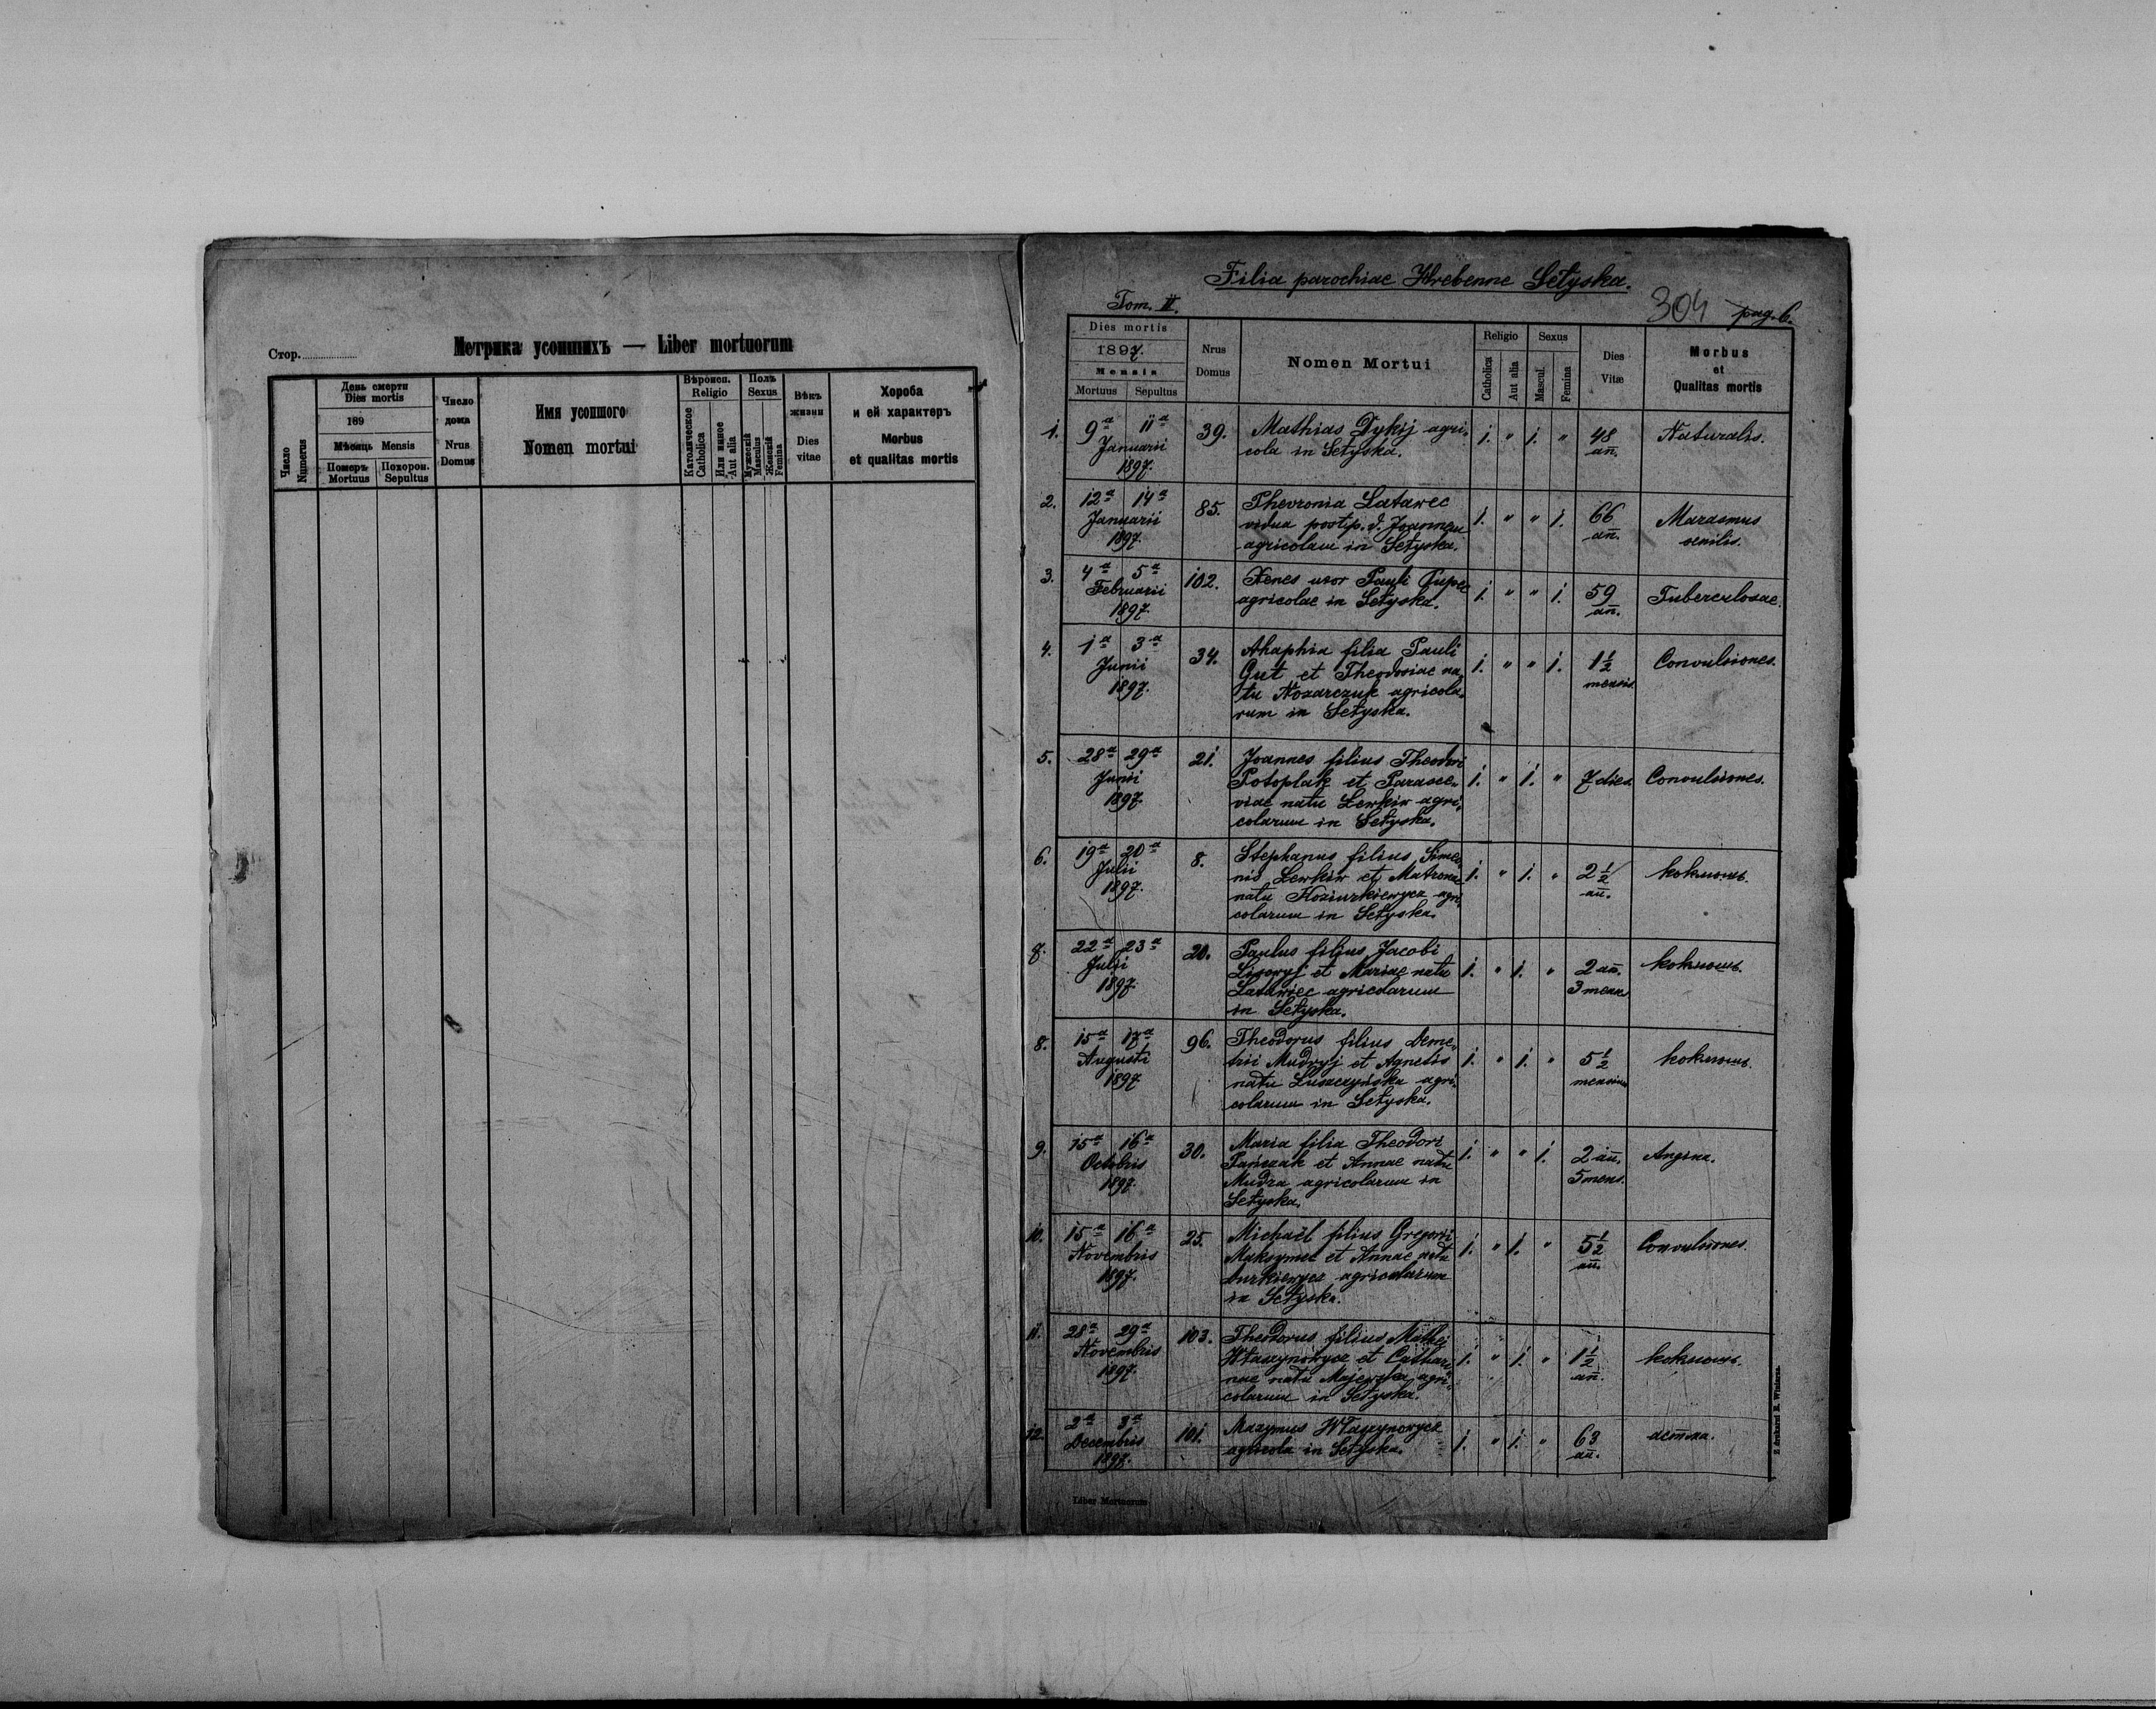 Стор.
Метрика усопшихъ — Liber mortuorum
Число
Numerus
День смерти
Dies mortis
189
Мѣсяць Mensis
Померъ Mortuus
Похорон. Sepultus
Число дома
Nrus Domus
Имя усопшого
Nomen mortui
Вѣроисп.
Religio
Католическое
Catholica
Или иное
Aut alia
Полъ
Sexus
Мужескій
Masculus
Женскій
Femina
Вѣкъ жизни
Dies vitae
Хороба
и ей характеръ
Morbus
et qualitas mortis
Filia parochiae Hrebenne Sełyska.
Tom. II.
304 pag. 6.
Dies mortis
1897.
Mensis
Mortuus Sepultus
Nrus
Domus
Nomen Mortui
Religio
Catholica
Aut alia
Sexus
Mascul.
Femina
Dies
Vitæ
Morbus
et
Qualitas mortis
1. 9a 11a 39. Mathias Dykij agri- 1. " 1. " 48 Naturalis.
Januarii cola in Sełyska. an.
1897.
2. 12a 14a 85. Thevronia Latawec 1. " " 1. 66 Marasmus
Januarii vidua postip. d. Joannem an. senilis.
1897 agricolam in Sełyska.
3. 4a 5a 102. Xenes uxor Pauli 1. " " 1. 59 Tuberculosae.
Februarii agricolae in Sełyska. an.
1897.
4. 1a 3a 34. Ahaphia filia Pauli 1. " " 1. 1½ Convulsiones.
Junii Gut et Theodosiae na- mensis
1897. tu Nozarczuk agricola-
rum in Sełyska.
5. 28a 29a 21. Joannes filius Theodori 1. " 1. " 7 dies. Convulsiones.
Junii Potoplak et Parasce-
1897. viae natu Lewkiw agri-
colarum in Sełyska.
6. 19a 20a 8. Stephanus filius Simeo- 1. " 1. " 2½ коклюшъ.
Julii nis Lewkiw et Matronae an.
1897. natu Koziurkiewycz agri-
colarum in Sełyska.
22a 23a 20. Paulus filius Jacobi 1. " 1. " 2 an. коклюшъ.
Julii et Mariae natu 3 mens.
1897. Latawiec agricolarum
in Sełyska.
8. 15a 17a 96. Theodorus filius Deme- 1. " 1. " 5½ коклюшъ.
Augusti trii Mudryj et Agnetis mensium
1897 natu Luszczyńska agri-
colarum in Sełyska.
9. 15a 16a 30. Maria filia Theodori 1. " " 1. 2 an. Angina.
Octobris Pańczak et Annae natu 5 mens.
1897. Mudra agricolarum in
Sełyska.
10. 15a 16a 25. Michaël filius Gregorii 1. " 1. " 5½ Convulsiones.
Novembris Maksymec et Annae natu an.
1897. agricolarum
in Sełyska.
11. 28a 29a 103. Theodorus filius 1. " 1. " 1½ коклюшъ.
Novembris Właszynowycz et Cathari- an.
1897. nae natu Majewska agri-
colarum in Sełyska.
12. 2a 3a 101. Maxymus Właszynowycz 1. " 1. " 63 астма.
Decembris agricola in Sełyska. an.
1897.
Liber Mortuorum